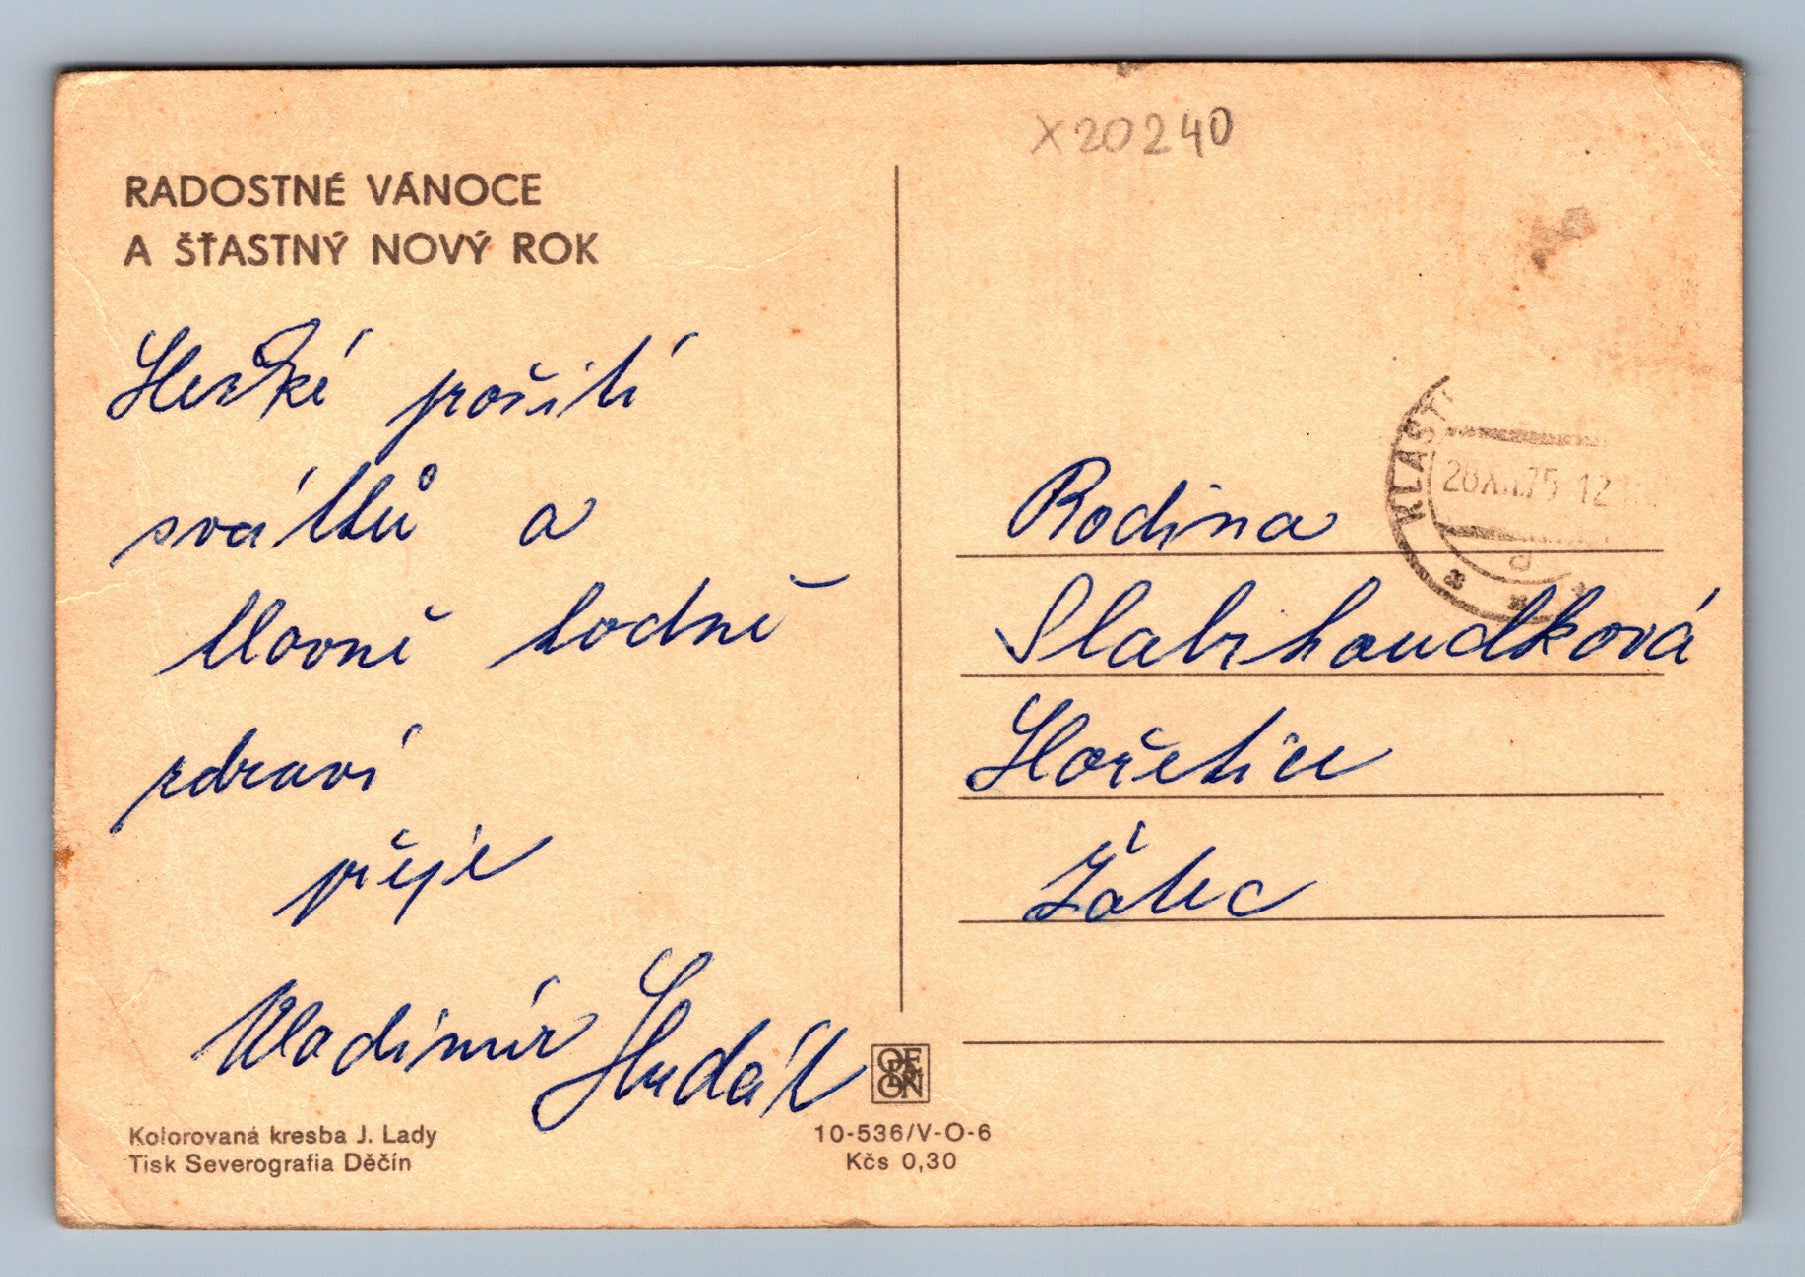 X20240
RADOSTNÉ VÁNOCE
A ŠŤASTNÝ NOVÝ ROK
Hezké prožití
svátků a
hlavně hodně
zdraví
přeje
Vladimír Hudák
Kolorovaná kresba J. Lady
Tisk Severografia Děčín
ODEON
10-536/V-O-6
Kčs 0,30
KLÁŠT
28.XII.75 12
Rodina
Slabihoudková
Hořetice
Žatec